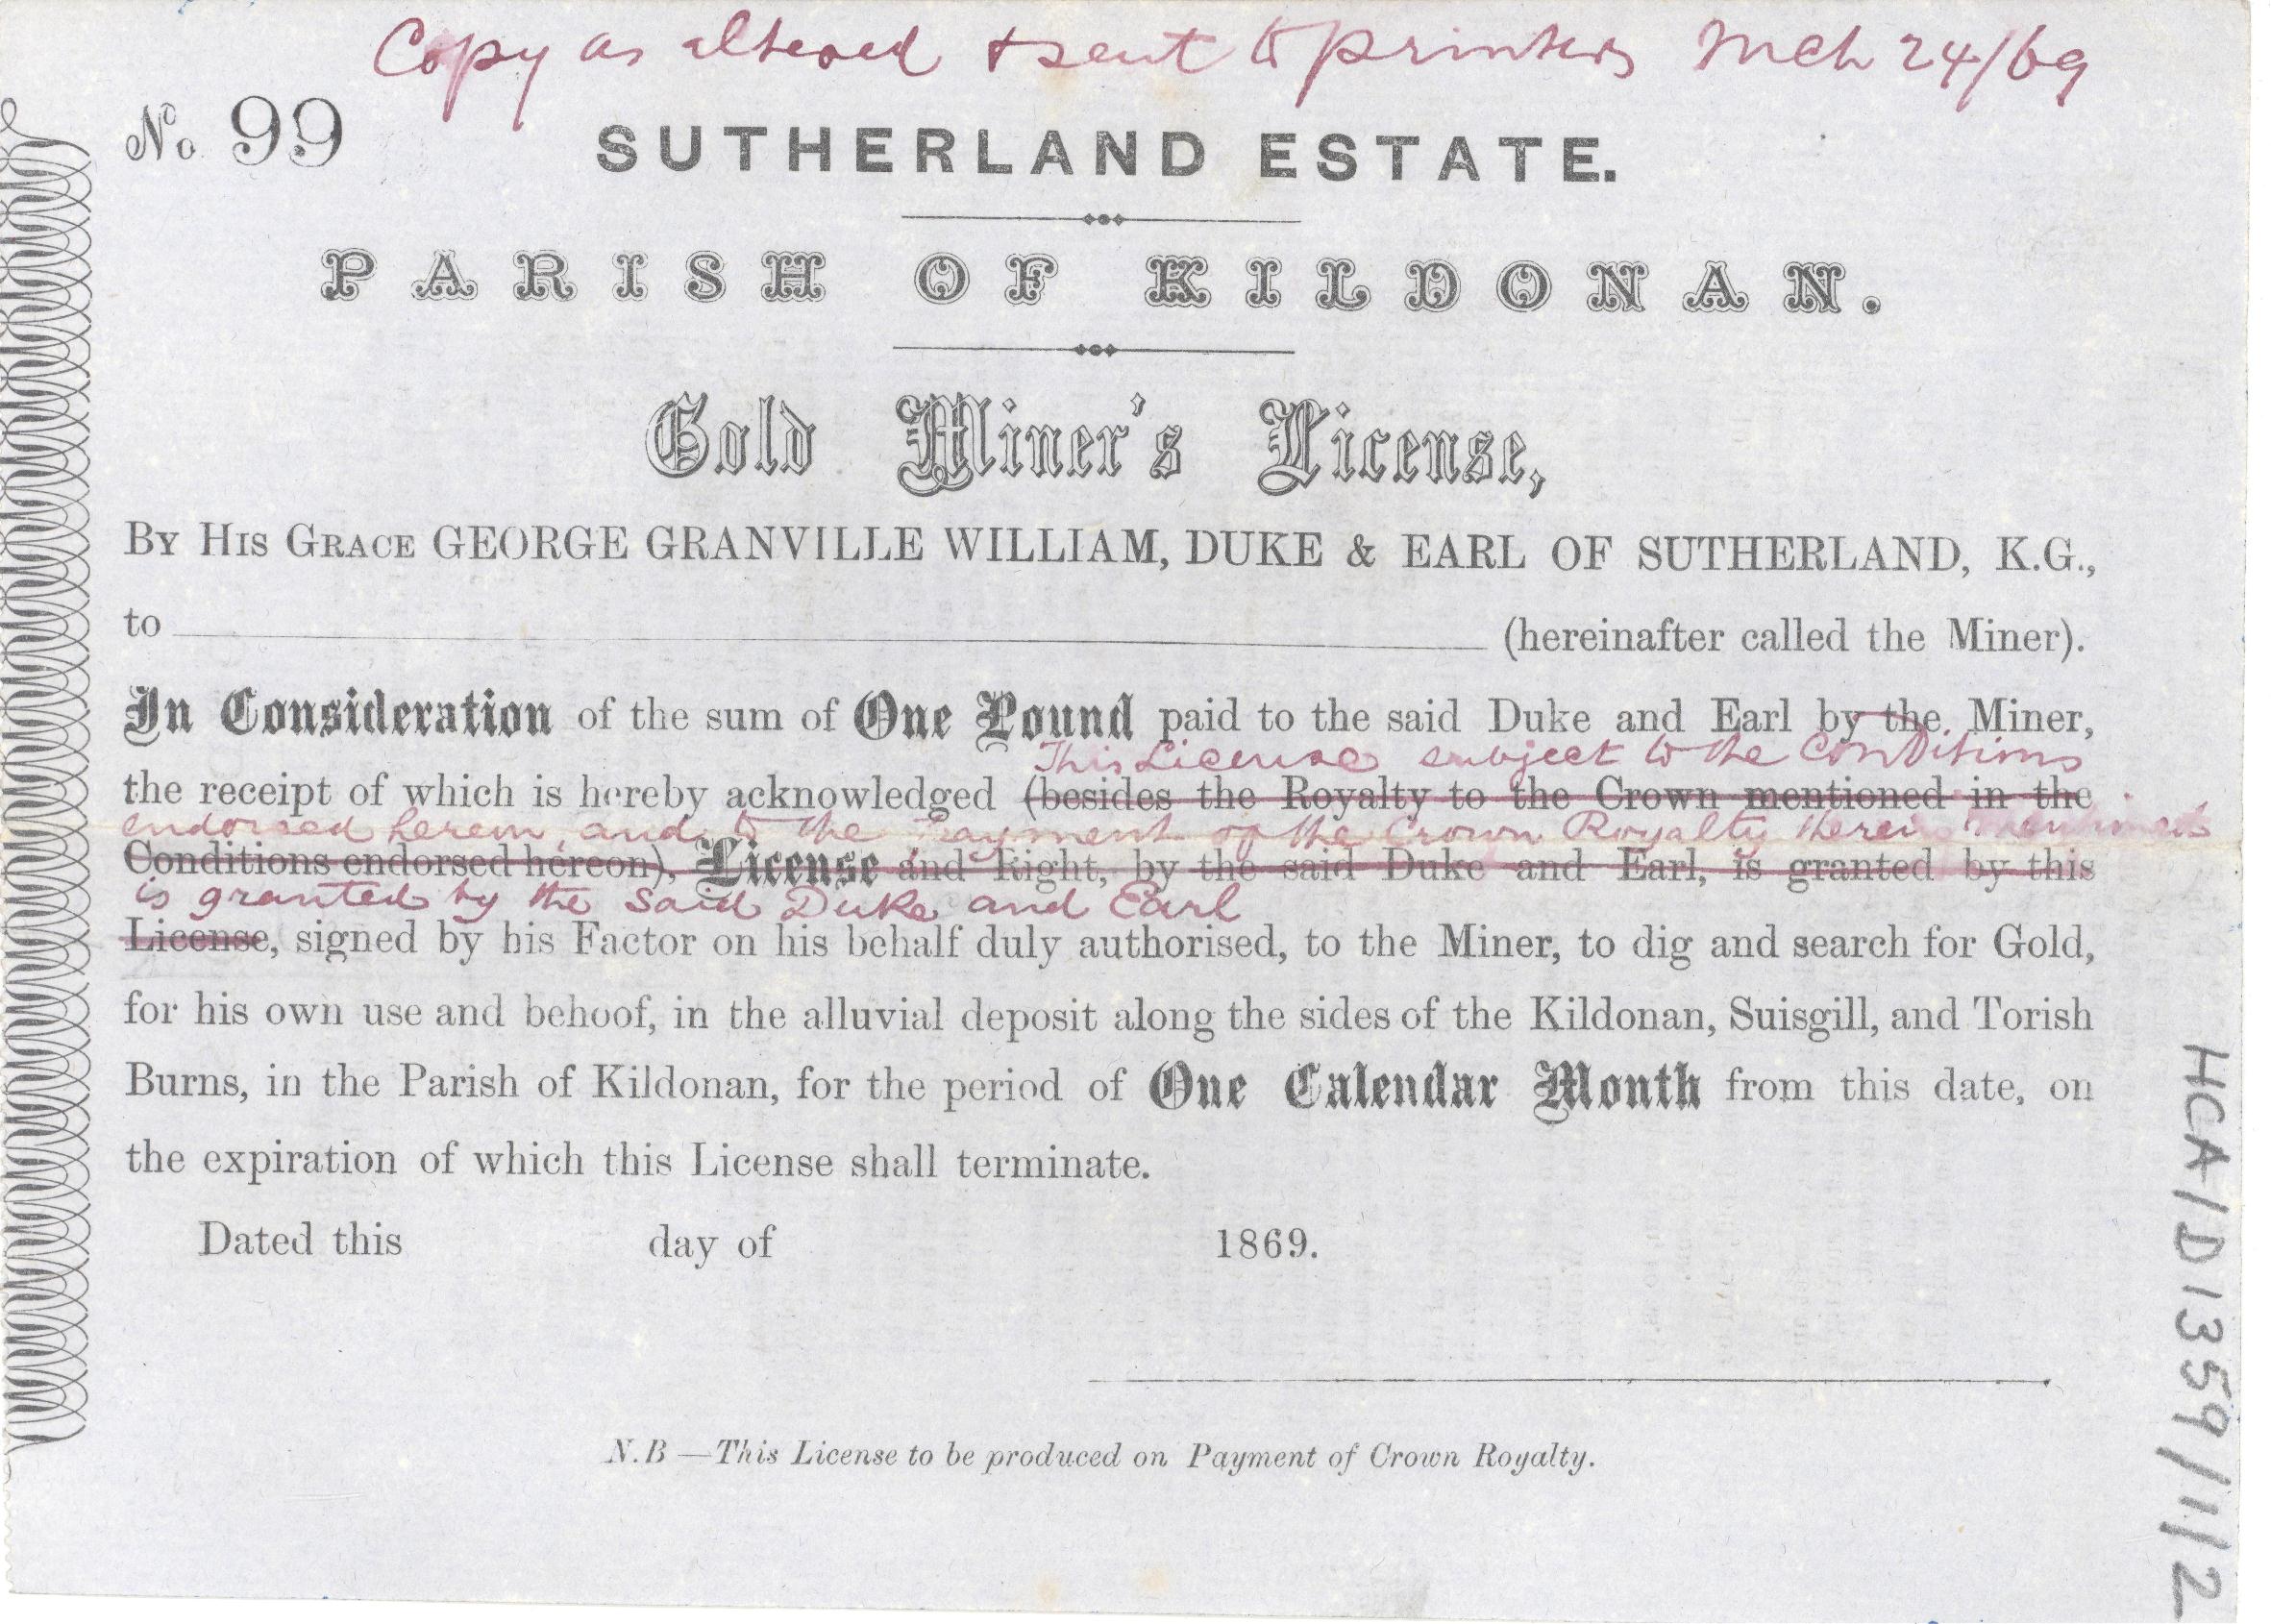 Copy as altered & sent to printers Mch 24/69
No. 99
SUTHERLAND ESTATE.
PARISH OF KILDONAN.
Gold Miner's License,
BY HIS GRACE GEORGE GRANVILLE WILLIAM, DUKE & EARL OF SUTHERLAND, K.G.,
to (hereinafter called the Miner).
In Consideration of the sum of One Pound paid to the said Duke and Earl by the Miner,
This License subject to the Conditions
the receipt of which is hereby acknowledged (besides the Royalty to the Crown mentioned in the
endorsed hereon, and to the Payment of the Crown Royalty therein mentioned
Conditions endorsed hereon), License and Right, by the said Duke and Earl, is granted by this
is granted by the said Duke and Earl
License, signed by his Factor on his behalf duly authorised, to the Miner, to dig and search for Gold,
for his own use and behoof, in the alluvial deposit along the sides of the Kildonan, Suisgill, and Torish
Burns, in the Parish of Kildonan, for the period of One Calendar Month from this date, on
the expiration of which this License shall terminate.
Dated this day of 1869.
N.B—This License to be produced on Payment of Crown Royalty.
HCA/D1359/1/12